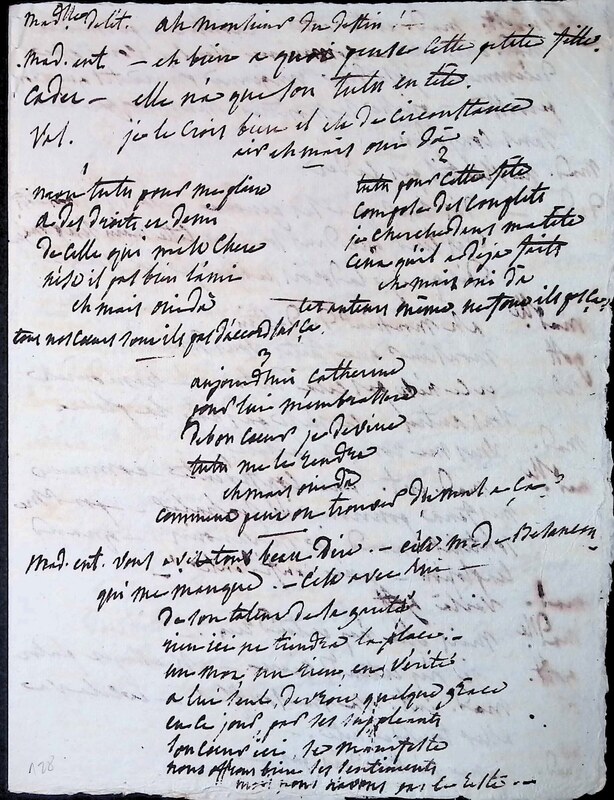 Madlle delit. ah monsieur du destin !
Mad. ent - eh bien a quoi pense cette petite fille.
Cadet - elle n'a que son tutu en tête.
Val. je le crois bien il est de circonstance
air eh mais oui dà
1
mon tutu pour me plaire
a des droits
de celle qui m'est chere
n'est il pas bien l'ami
eh mais oui dà
tous nos cœurs sont ils pas d'accord sur ça.
2
tutu pour cette fête
compose des couplets
je cherche dans ma tête
ceux qu'il a deja faits
eh mais oui dà
les auteurs même ne sont ils pas
3
aujourd'hui Catherine
pour lui m'embrassera
de bon cœur je devine
tutu me le rendra
eh mais oui dà
comment peut on trouver du mal a ça ?
Mad. ent. vous avez tous beau dire. - c'est Mr de Besancon
qui me manque. - c'est avec
de son talent de sa gaité
rien ici ne tiendra la place. -
un mot, un rien, en vérité
a lui seul, devroit quelque grace
en ce jour, par ses suppléants
son cœur ici, se manifeste
nous offrons bien les sentiments
mais nous n'avons pas le reste --
128